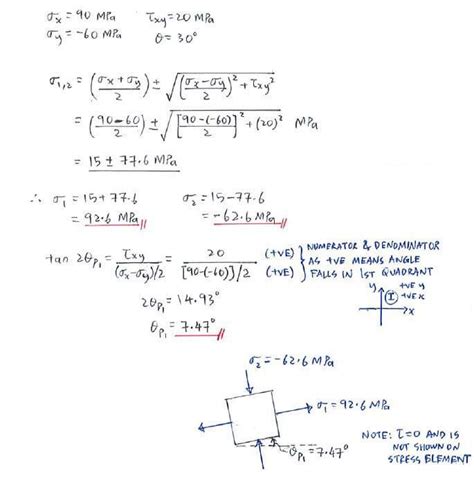 σx = 90 MPa τxy = 20 MPa
σy = -60 MPa θ = 30°
σ1,2 = ((σx + σy)/2) ± √(((σx - σy)/2)² + τxy²)
= ((90 - 60)/2) ± √([(90 - (-60))/2]² + (20)²) MPa
= 15 ± 77.6 MPa
∴ σ1 = 15 + 77.6 σ2 = 15 - 77.6
= 92.6 MPa = -62.6 MPa
tan 2θP1 = τxy/((σx - σy)/2) = 20/([90 - (-60)]/2) (+VE) (+VE) } NUMERATOR & DENOMINATOR
AS +VE MEANS ANGLE
FALLS IN 1ST QUADRANT
2θP1 = 14.93°
y +VE y
I +VE x
x
θP1 = 7.47°
σ2 = -62.6 MPa
σ1 = 92.6 MPa
θP1 = 7.47°
NOTE: τ = 0 AND IS
NOT SHOWN ON
STRESS ELEMENT